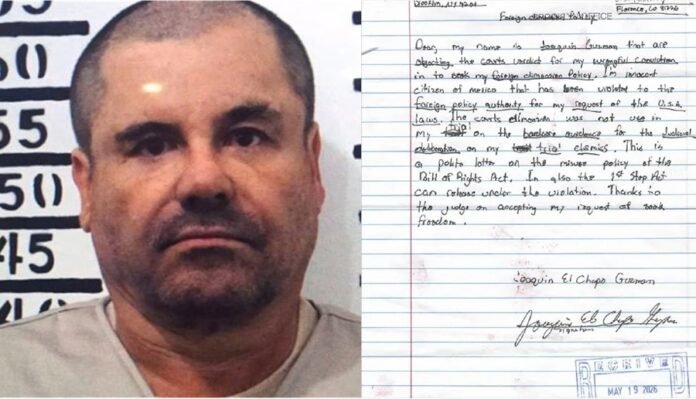 50
55
50
45
Brooklyn, NY 11201
Florence, CO 81226
Foreign Policy
OFFICE
Dear, my name is Joaquin Guzman that are
objecting, the courts verdict for my wrongful conviction
in to seek my foreign Policy. I'm innocent
citizen of mexico that has been violated to the
foreign policy authority for my request of the U.S.A.
laws. The courts was not use in
my trial on the hardcore evidence for the
on my trial claims. This is
a polite letter on the policy of the
Bill of Rights Act. In also the 1st Step Act
can release under the violation. Thanks to
the judge on accepting my request of seek
freedom.
Joaquin El Chapo Guzman
Joaquin El Chapo Guzman
signature
RECEIVED
MAY 19 2026